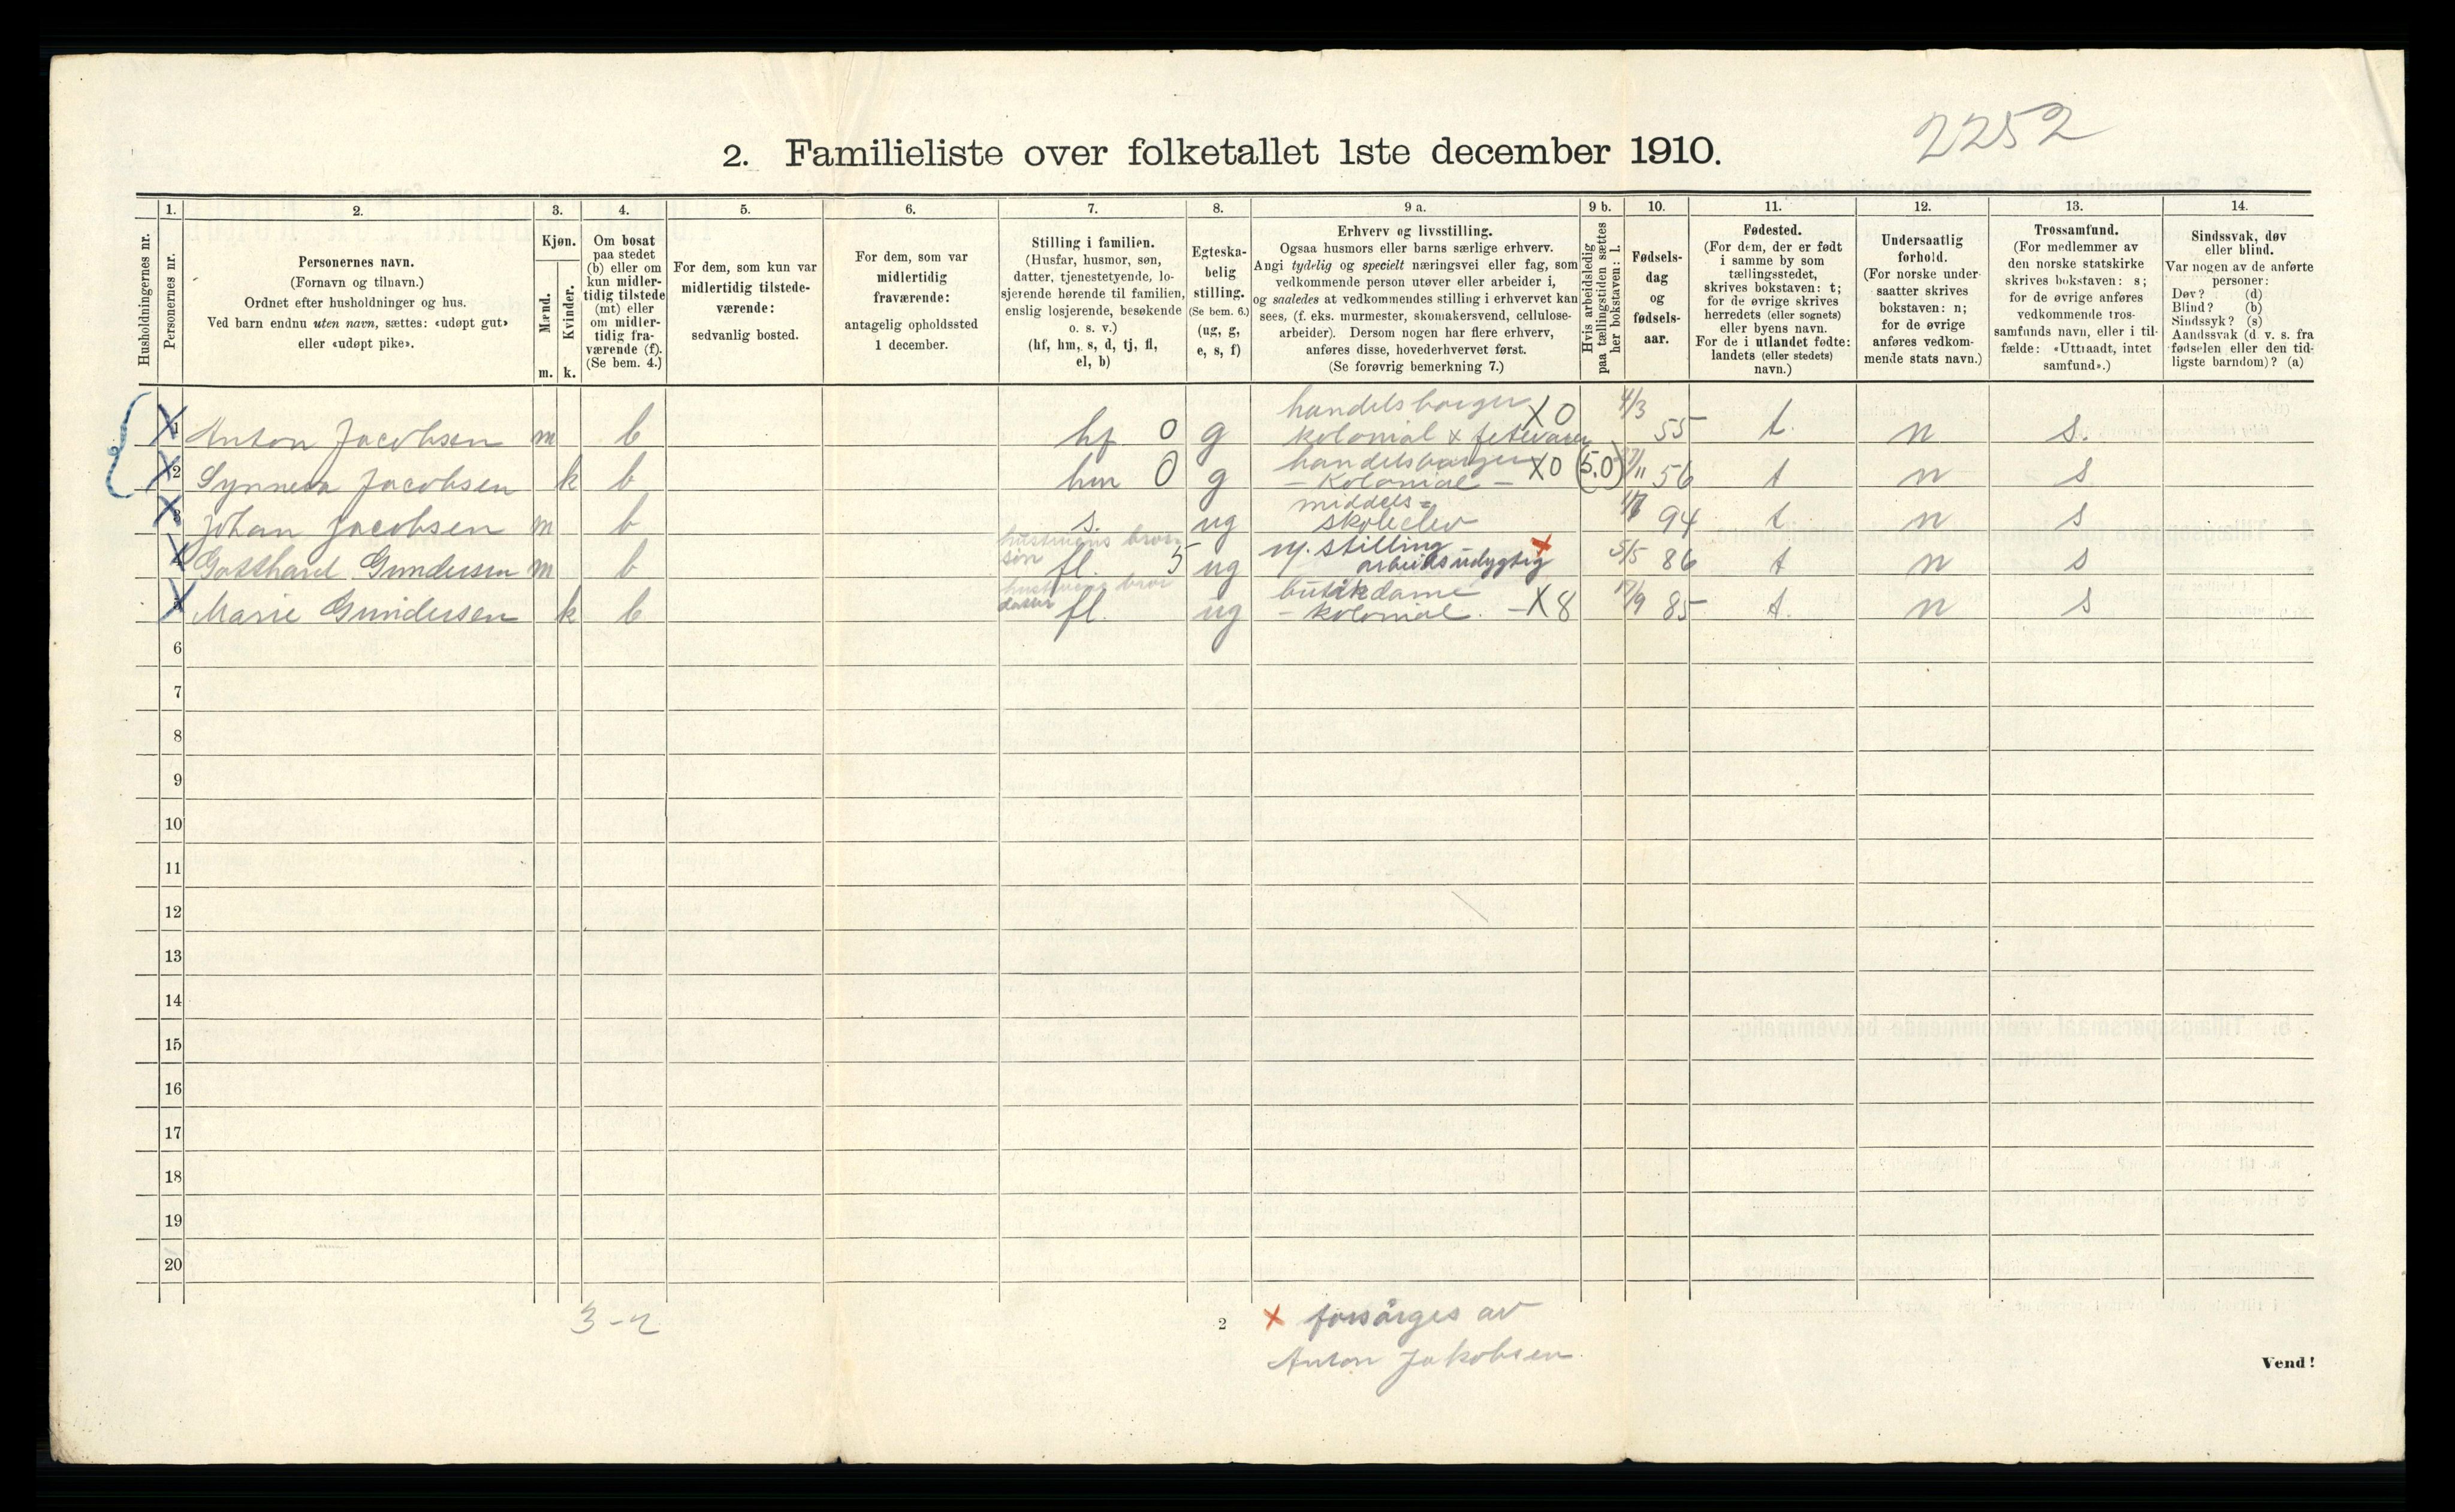 2252
2. Familieliste over folketallet 1ste december 1910.
Husholdningernes nr.
1.
Personernes nr.
2.
Personernes navn.
(Fornavn og tilnavn.)
Ordnet efter husholdninger og hus.
Ved barn endnu uten navn, sættes: «udøpt gut»
eller «udøpt pike».
3.
Kjøn.
Mænd.
Kvinder.
m. k.
4.
Om bosat
paa stedet
(b) eller om
kun midler-
tidig tilstede
(mt) eller
om midler-
tidig fra-
værende (f).
(Se bem. 4.)
5.
For dem, som kun var
midlertidig tilstede-
værende:
sedvanlig bosted.
6.
For dem, som var
midlertidig
fraværende:
antagelig opholdssted
1 december.
7.
Stilling i familien.
(Husfar, husmor, søn,
datter, tjenestetyende, lo-
sjerende hørende til familien,
enslig losjerende, besøkende
o. s. v.)
(hf, hm, s, d, tj, fl,
el, b)
8.
Egteska-
belig
stilling.
(Se bem. 6.)
(ug, g,
e, s, f)
9 a.
Erhverv og livsstilling.
Ogsaa husmors eller barns særlige erhverv.
Angi tydelig og specielt næringsvei eller fag, som
vedkommende person utøver eller arbeider i,
og saaledes at vedkommendes stilling i erhvervet kan
sees, (f. eks. murmester, skomakersvend, cellulose-
arbeider). Dersom nogen har flere erhverv,
anføres disse, hovederhvervet først.
(Se forøvrig bemerkning 7.)
9 b.
Hvis arbeidsledig
paa tællingstiden sættes
her bokstaven: l.
10.
Fødsels-
dag
og
fødsels-
aar.
11.
Fødested.
(For dem, der er født
i samme by som
tællingsstedet,
skrives bokstaven: t;
for de øvrige skrives
herredets (eller sognets)
eller byens navn.
For de i utlandet fødte:
landets (eller stedets)
navn.)
12.
Undersaatlig
forhold.
(For norske under-
saatter skrives
bokstaven: n;
for de øvrige
anføres vedkom-
mende stats navn.)
13.
Trossamfund.
(For medlemmer av
den norske statskirke
skrives bokstaven: s;
for de øvrige anføres
vedkommende tros-
samfunds navn, eller i til-
fælde: «Uttraadt, intet
samfund».)
14.
Sindssvak, døv
eller blind.
Var nogen av de anførte
personer:
Døv? (d)
Blind? (b)
Sindssyk? (s)
Aandssvak (d. v. s. fra
fødselen eller den tid-
ligste barndom)? (a)
handelsborger X0 4/3
1 Anton Jacobsen m b hf. 0 g kolonial & fetevarer 55 t. n s.
handelsborger
2 Synneva Jacobsen k b hm 0 g - kolonial - X0 (5.0) /11 56 t n s
middels=
3 Johan Jacobsen m b s. ug skoleelev 94 t n s
hustruens bror
søn u. stilling x
4 Gotthard Gundersen m b fl. 5 ug arbeidsudygtig 5/5 86 t n s
hustruens bror
datter butikdame
5 Marie Gundersen k b fl. ug - kolonial. - X8 /9 85 t. n s
6
7
8
9
10
11
12
13
14
15
16
17
18
19
20
3-2
2
x forsørges av
Anton Jakobsen.
Vend!